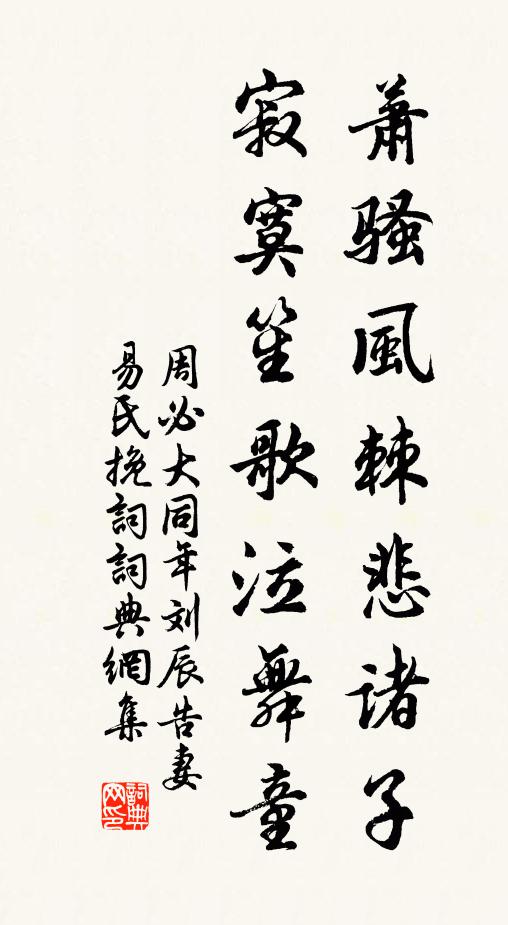 蕭騷風棘悲諸子
寂寞笙歌泣舞童
周必大同年刘辰告妻
易氏挽詞詞典網集
詞典网印